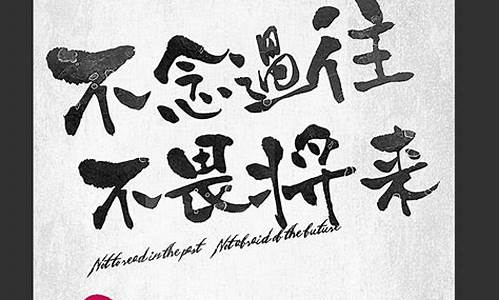 不念过往
不畏将来
Not to read in the past Not afraid d the future